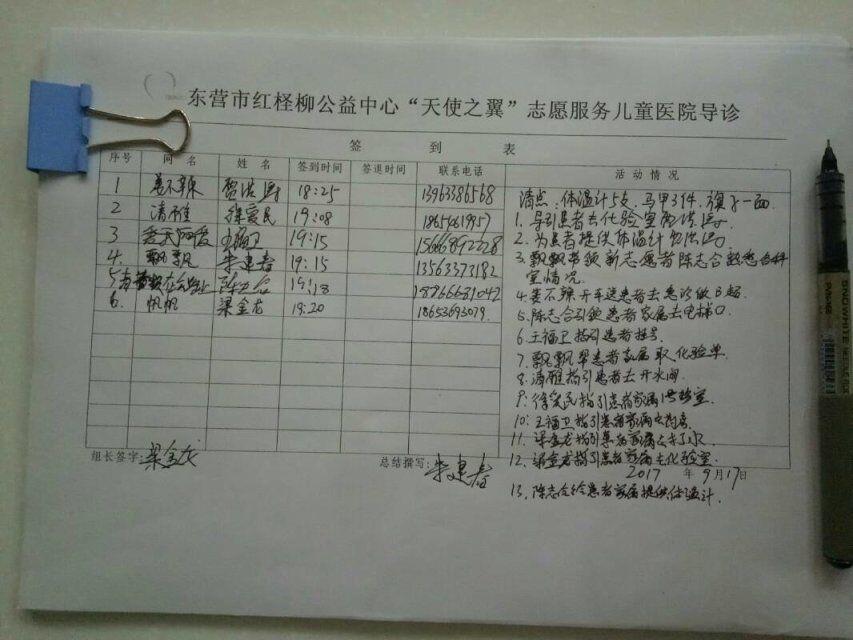 东营市红柽柳公益中心“天使之翼”志愿服务儿童医院导诊
签 到 表
序号 网名 姓名 签到时间 签退时间 联系电话 活动情况
1 姜不辣 贺洪 18:25 13963386568
2 清雅 徐爱民 19:08
3 王福卫 19:15
4. 飘飘 朱建春 19:15 13563373182
5 陈志合 19:18
6. 帆帆 梁金龙 19:20 18653693079
清点:体温计5支.马甲3件.旗子一面.
1. 导引患者去化验室
2. 为患者提供体温计
3. 飘飘带领新志愿者陈志合熟悉各科
室情况.
4. 姜不辣开车送患者去急诊做B超.
5. 陈志合引领患者家属去电梯口.
6. 王福卫指引患者挂号.
7. 飘飘帮患者家属取化验单.
8. 清雅指引患者去开水间.
9. 徐爱民指引患者家属
10. 王福卫指引患者家属去药房.
11. 梁金龙指引患者家属去
12. 梁金龙指引患者家属去化验室.
组长签字: 梁金龙 总结撰写: 朱建春 2017 年 9月17日
13. 陈志合给患者家属提供体温计.